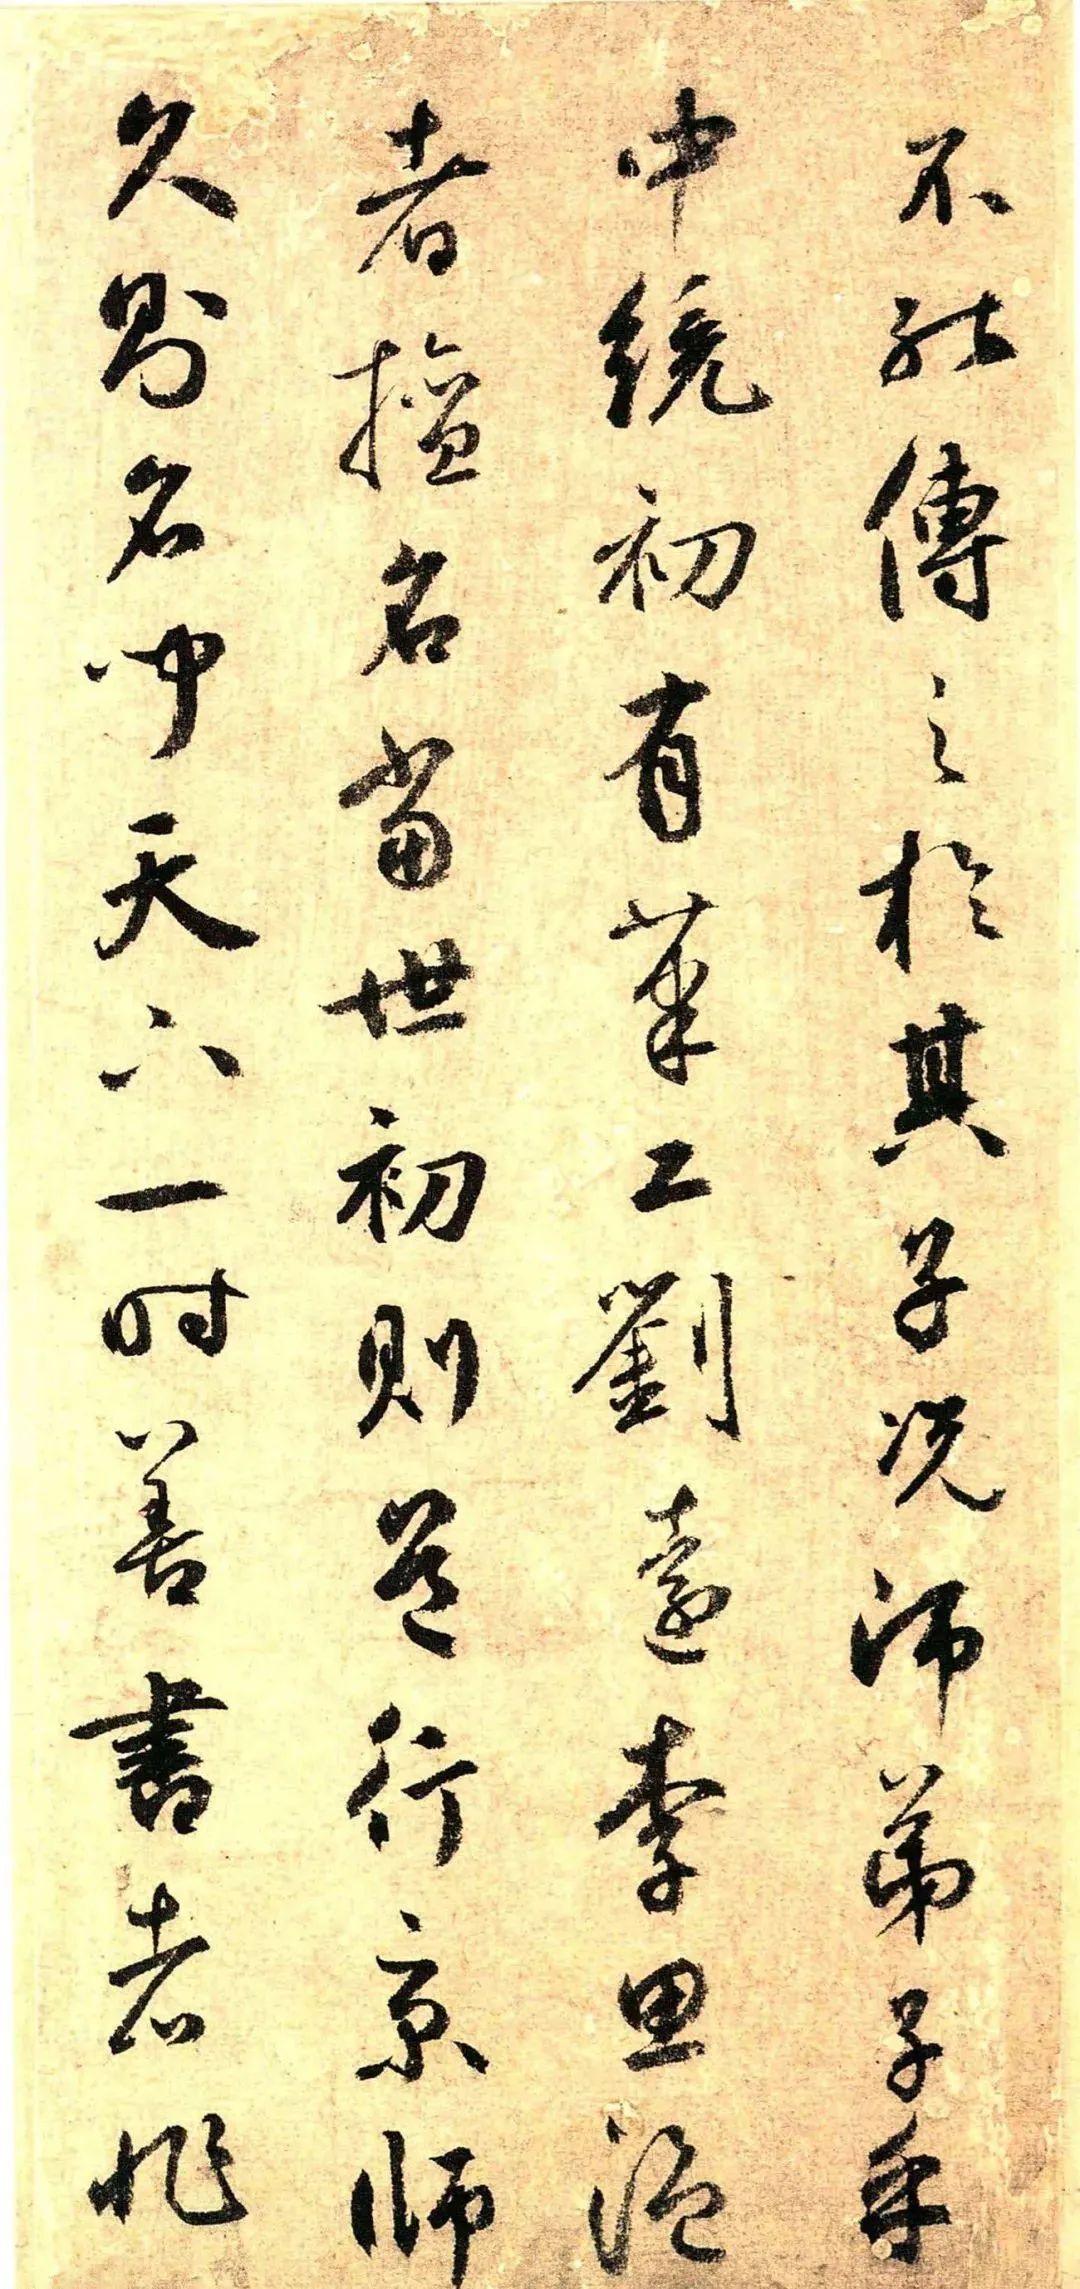 不能傳之於其子況師弟子乎
中統初有筆工劉遠李思溫
者擅名當世初則行京師
久則名聞天下一時善書者非